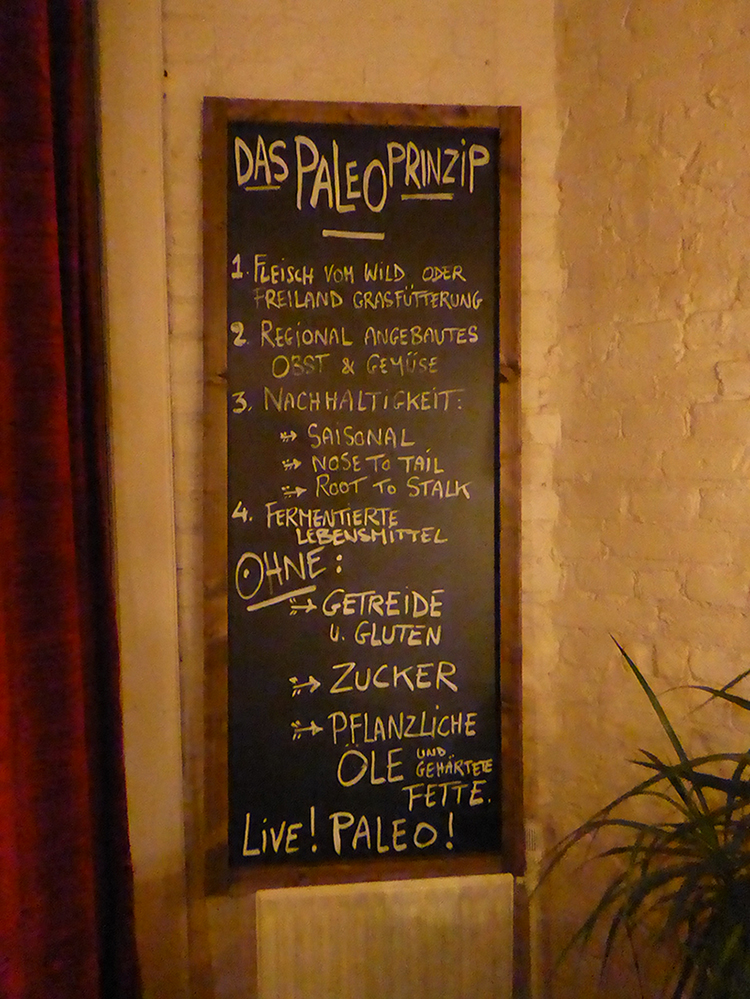 DAS PALEO PRINZIP
1. FLEISCH VOM WILD ODER
FREILAND GRASFÜTTERUNG
2. REGIONAL ANGEBAUTES
OBST & GEMÜSE
3. NACHHALTIGKEIT:
SAISONAL
NOSE TO TAIL
ROOT TO STALK
4. FERMENTIERTE
LEBENSMITTEL
OHNE:
GETREIDE
u. GLUTEN
ZUCKER
PFLANZLICHE
ÖLE UND GEHÄRTETE
FETTE.
LIVE! PALEO!